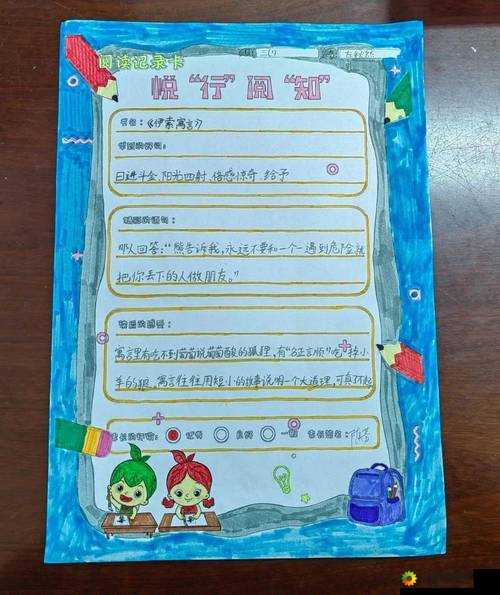 阅读记录卡
三(1)
悦“行”阅“知”
书名:《伊索寓言》
日进斗金、阳光四射、倍感惊奇、给予
精彩的语句:
那人回答:“熊告诉我,永远不要和一个一遇到危险就
把你丢下的人做朋友。”
读后的感受:
寓言里有吃不到葡萄说葡萄酸的狐狸,有“名正言顺”吃掉小
羊的狼,寓言往往用短小的故事说明一个大道理,可真不起
家长的评价: 优秀 良好 一般 家长签名: